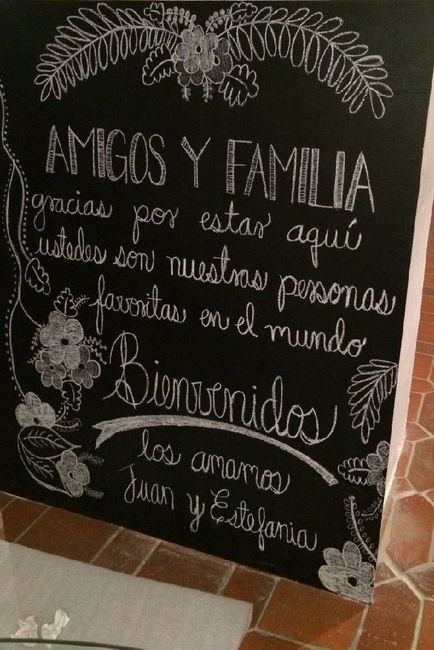 AMIGOS Y FAMILIA
gracias por estar aquí
ustedes son nuestras personas
favoritas en el mundo
Bienvenidos
los amamos
Juan y Estefania